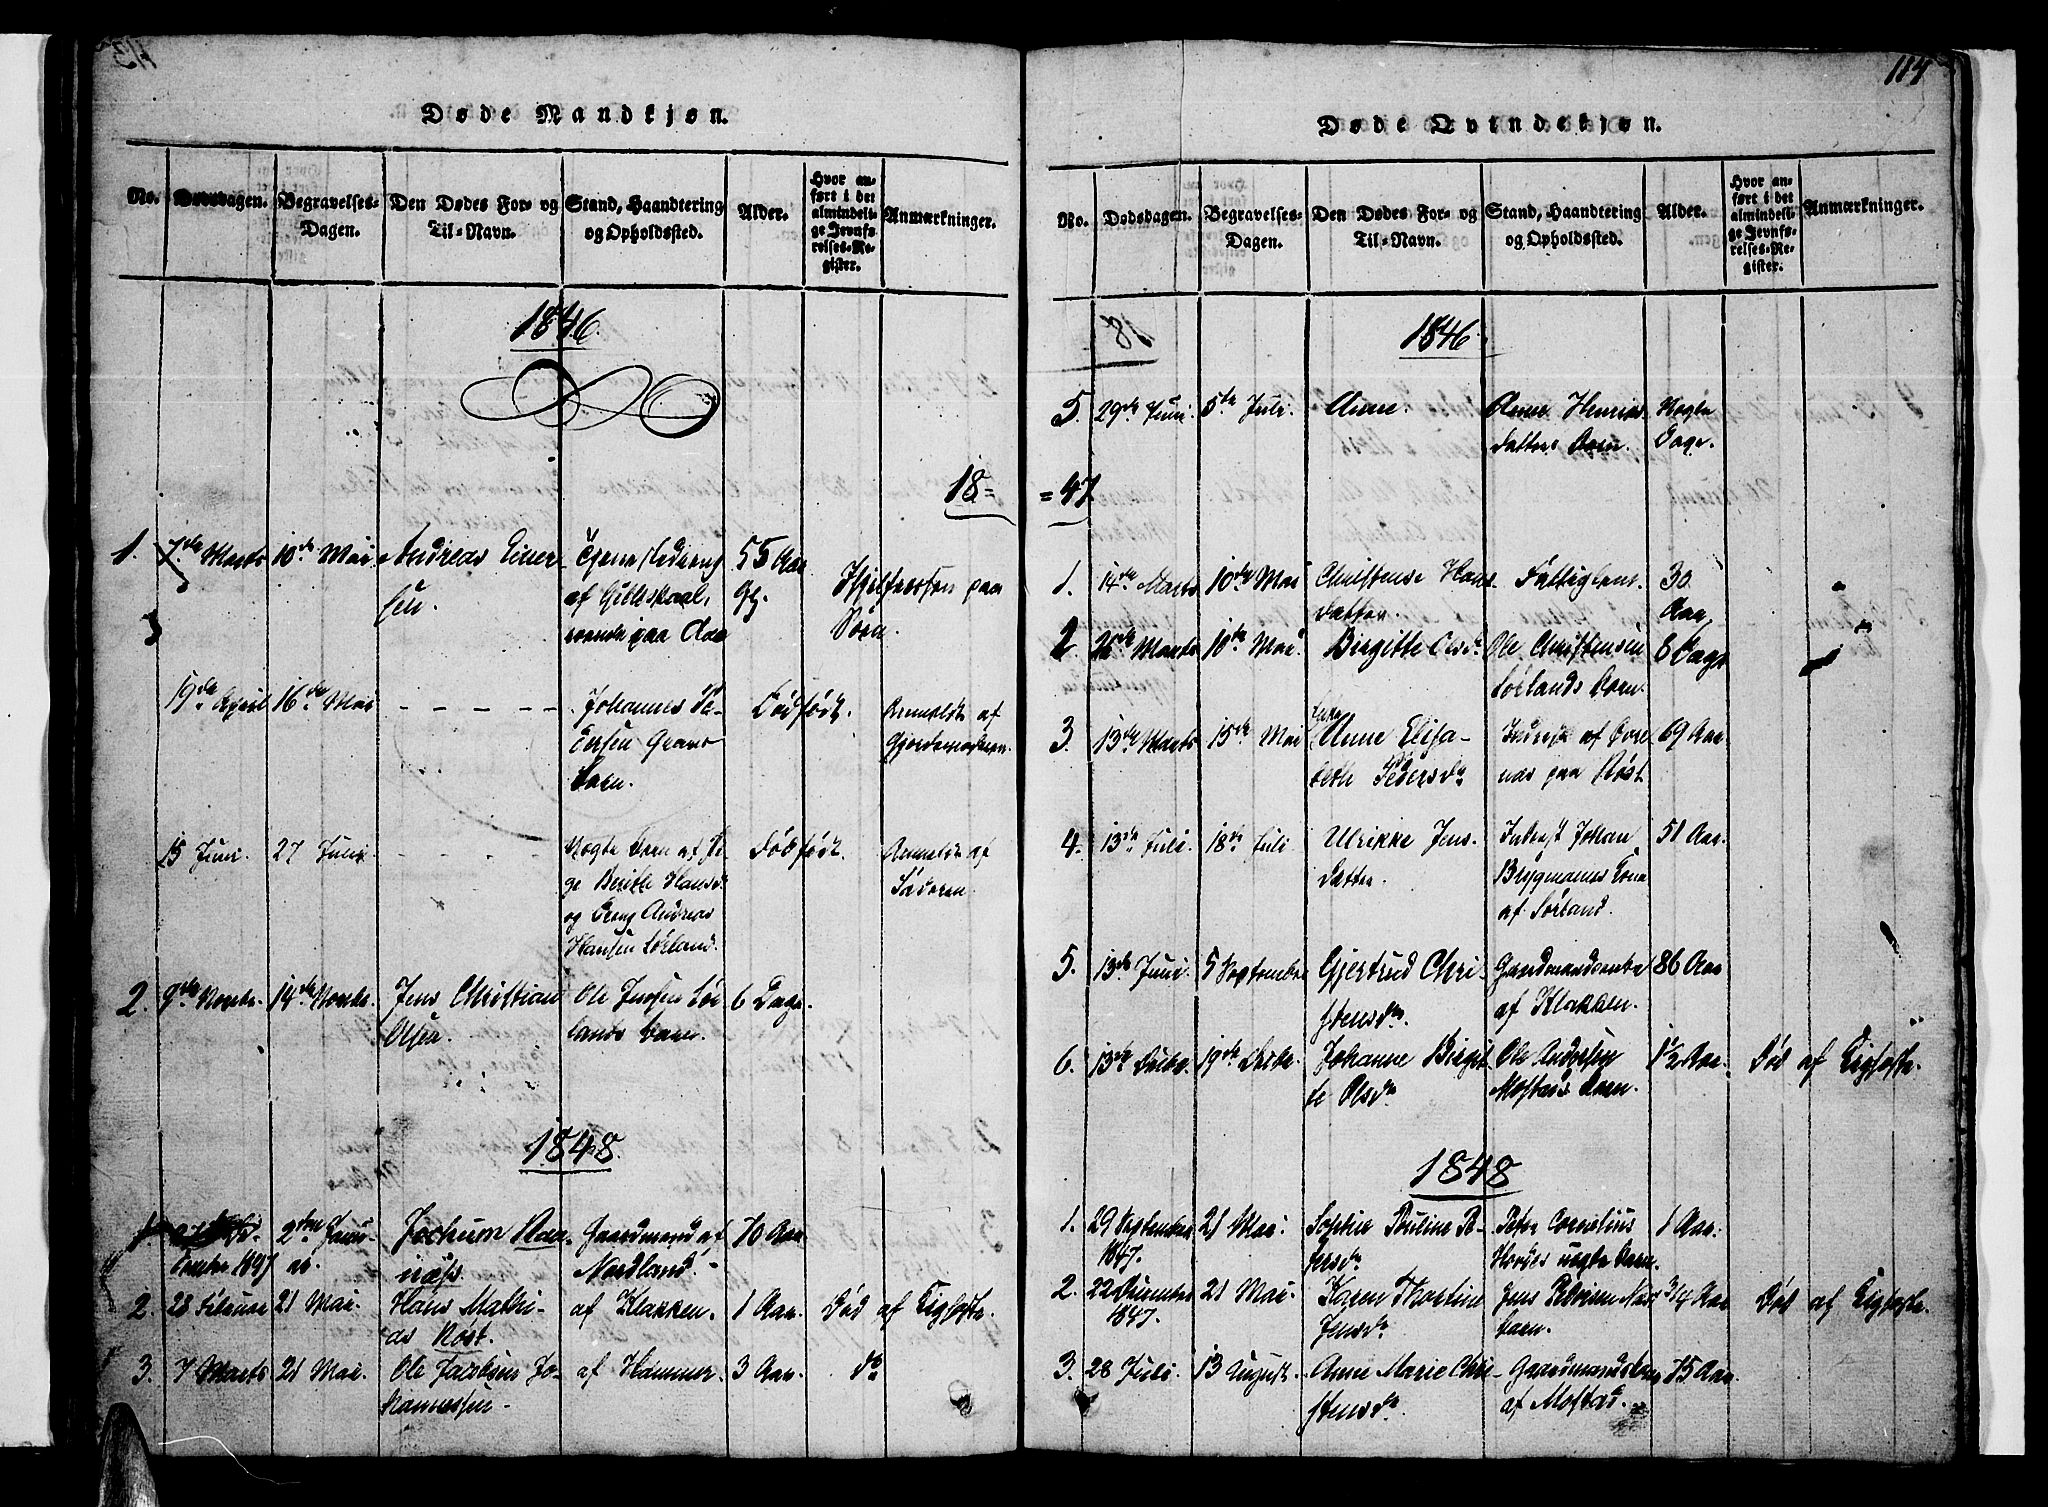 114
Døde Mandkjøn.
No.
Dødsdagen.
Begravelses-
Dagen.
Den Dødes For- og
Til-Navn.
Stand, Haandtering
og Opholdssted.
Alder.
Hvor an-
ført i det
almindeli-
ge Jevnfø-
relses-Re-
gister.
Anmærkninger.
1846.
18=
1. 7de Marts 10de Mai Andreas Einer-
sen.
af Gilleskaal,
55 Aar
paa
19de April 16de Mai - - - - - Johannes Pe-
dersen
Barn.
Dødfødt. Anmeldt af
Gjordemoderen.
15 Juni. 27 Juli. - - - - Uægte Barn af Pi-
ge Berithe Hansd.
og Andreas
Hansen Sørland.
Dødfødt. Anmeldt af
Faderen.
2. 9de Novbr. 14de Novbr. Jens Christian
Olsen.
Ole Jensen Sør-
lands Barn.
6 Dage.
1848.
1. 27
1847
2den Janu-
ar.
Jochum
næss.
Gaardmand af
Nordland.
70 Aar
2. 23 Februar 21 Mai. Hans Mathi-
as Røst.
af Klakken. 1 Aar. Død af
3. 7 Marts 21 Mai. Ole Jacobsen Jo-
hannessen
af Hammer. 3 Aar. do
Døde Qvindekjøn.
No.
Dødsdagen.
Begravelses-
Dagen.
Den Dødes For- og
Til-Navn.
Stand, Haandtering
og Opholdssted.
Alder.
Hvor an-
ført i det
almindeli-
ge Jevnfø-
relses-Re-
gister.
Anmærkninger.
1846.
5. 29de Juni. 5te Juli. Anne. Anne Henriks
Datters Barn.
Nogle
Dage.
=47
1. 14de Marts 10de Mai Christense Hans
Datter.
Fattiglem. 30
Aar,
2 Marts 10de Mai Birgitte Olsdr. Ole Christensen
Sørlands Barn.
8 Dage
3. 13de Marts 15de Mai Enke
Anne Elisa-
beth Pedersdr.
af
paa Røst
69 Aar
4. 13de Juli. 18de Juli Ulrikke Jens
Datter.
Inderst Johan
Brygmanns Kone
af Sørland.
51 Aar.
5. 13de Juni. 5 September Gjertrud Chri
stensdr.
Gaardmandsenke
af Klakken.
86 Aar
6. 13de Decbr. 19de Decbr. Johanne Birgit
te Olsdr.
Ole Andersen
Mostads Barn.
1½ Aar. Død af
1848
1. 29 September
1847.
21 Mai. Sophie Pauline Pe-
tersdr.
Peter Cornelius
uægte Barn.
1 Aar.
2. 22 December
1847.
21 Mai. Karen Martine
Jensdr.
Jens
Barn.
3/4 Aar Død af
3. 28 Juli. 13 August. Anne Marie Chri-
stensdr.
af Mostad.
75 Aar.